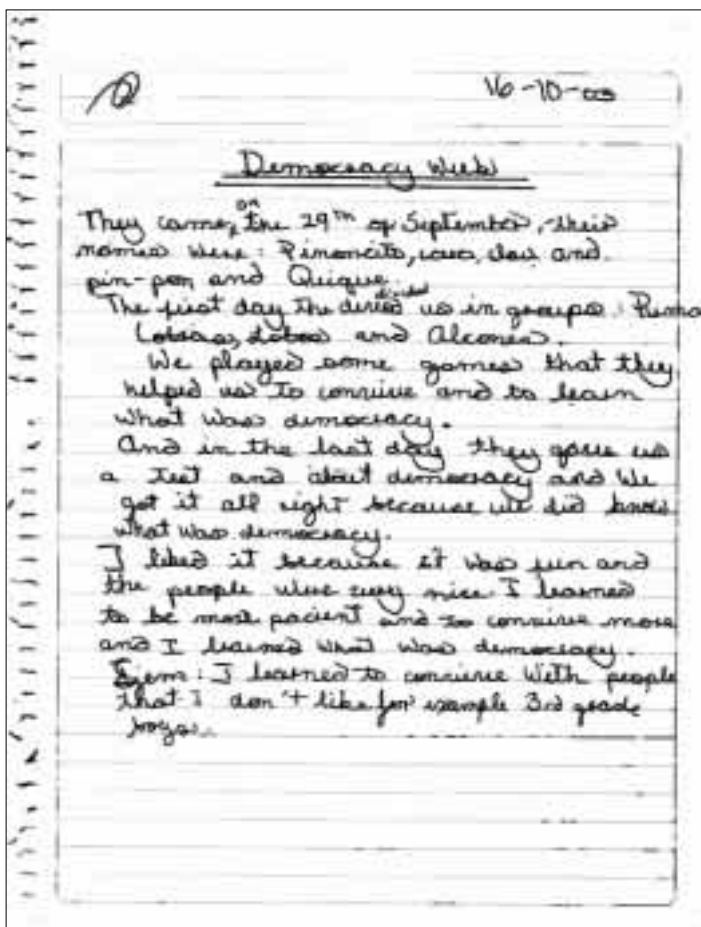 16-10-03
Democracy Week
They came, on the 29th of September, their
names were: Pinoncito, and
pin-pon and Quique.
The first day the divided us in groups: Puma
Lobos and Alcones.
We played some games that they
helped us to convive and to learn
what was democracy.
And in the last day they gave us
a test and about democracy and we
got it all right because we did know
what was democracy.
I liked it because it was fun and
the people were very nice I learned
to be more pacient and to convive more
and I learned what was democracy.
Ejem: I learned to convive with people
that I don't like for example 3rd grade
boys.